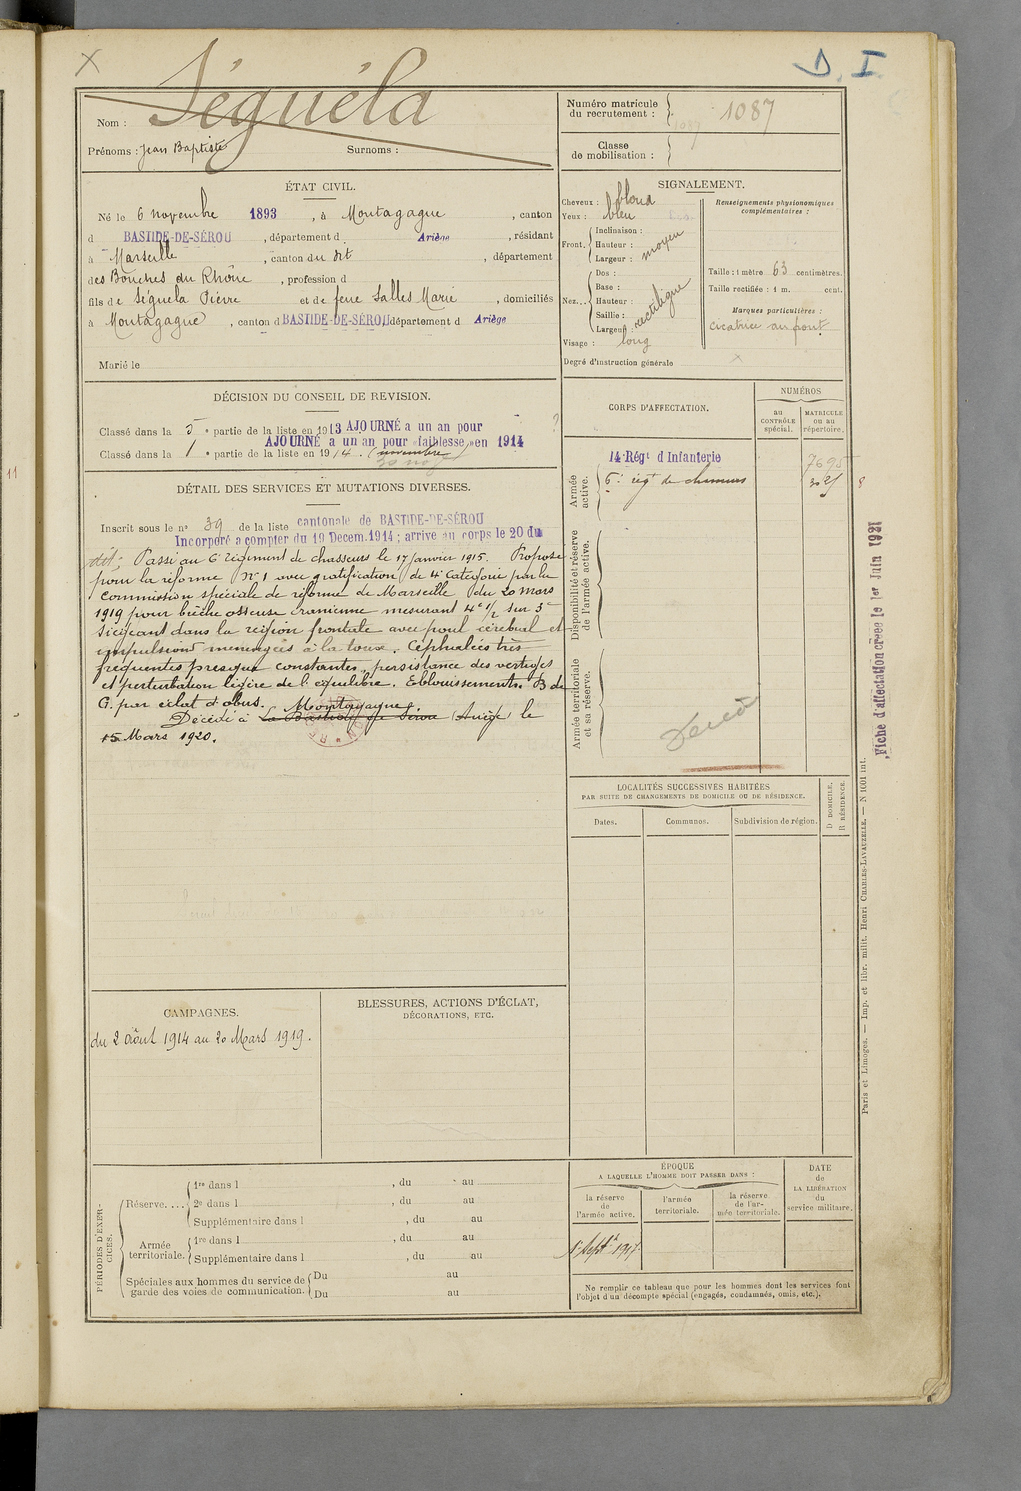 X
D. I
Nom : Séguéla
Prénoms : Jean Baptiste Surnoms :
Numéro matricule du recrutement : 1087
1087
Classe de mobilisation :
ÉTAT CIVIL.
Né le 6 novembre 1893, à Montagagne, canton
d BASTIDE-DE-SÉROU, département d Ariège, résidant
à Marseille, canton du dit, département
des Bouches du Rhône, profession d
fils de Séguéla Pierre et de feue Salles Marie, domiciliés
à Montagagne, canton d BASTIDE-DE-SÉROU département d Ariège
Marié le
SIGNALEMENT.
Cheveux : blond
Yeux : bleu
Front. Inclinaison :
Hauteur : moyen
Largeur :
Nez... Dos :
Base : rectiligne
Hauteur :
Saillie :
Largeur :
Visage : long
Degré d'instruction générale
Renseignements physionomiques complémentaires :
Taille : 1 mètre 63 centimètres.
Taille rectifiée : 1 m. cent.
Marques particulières :
cicatrice au front
DÉCISION DU CONSEIL DE REVISION.
Classé dans la 5e partie de la liste en 1913 AJOURNÉ a un an pour
AJOURNÉ a un an pour «faiblesse» en 1914
Classé dans la 1e partie de la liste en 1914. (novembre)
DÉTAIL DES SERVICES ET MUTATIONS DIVERSES.
Inscrit sous le n° 39 de la liste cantonale de BASTIDE-DE-SÉROU
Incorporé a compter du 19 Decem. 1914 ; arrive au corps le 20 du
dit; Passé au 6e régiment de chasseurs le 17 janvier 1915. Proposé
pour la réforme N° 1 avec gratification de 4e Catégorie par la
Commission spéciale de réforme de Marseille du 20 mars
1919 pour brèche osseuse cranienne mesurant 4c 1/2 sur 3c
siégeant dans la région frontale avec pouls cérébral et
impulsions meningées à la toux. Céphalées très
fréquentes presque constantes, persistance des vertiges
et perturbation légère de l'équilibre. Eblouissements. B de
G. par éclat d'obus. Montagagne
Décédé à La Bastide de Sérou (Ariège) le
15 Mars 1920.
CORPS D'AFFECTATION.
NUMÉROS
au CONTRÔLE spécial.
MATRICULE ou au répertoire.
Armée active.
14 Régt d'Infanterie 7695
6e régt de chasseurs
8
Disponibilité et réserve de l'armée active.
Armée territoriale et sa réserve.
Décédé
LOCALITÉS SUCCESSIVES HABITÉES
PAR SUITE DE CHANGEMENTS DE DOMICILE OU DE RÉSIDENCE.
Dates.
Communes.
Subdivision de région.
D DOMICILE.
R RÉSIDENCE.
CAMPAGNES.
du 2 Août 1914 au 20 Mars 1919.
BLESSURES, ACTIONS D'ÉCLAT,
DÉCORATIONS, ETC.
PÉRIODES D'EXERCICES.
Réserve.... 1re dans l , du au
2e dans l , du au
Supplémentaire dans l , du au
Armée territoriale. 1re dans l , du au
Supplémentaire dans l , du au
Spéciales aux hommes du service de garde des voies de communication. Du au
Du au
ÉPOQUE
A LAQUELLE L'HOMME DOIT PASSER DANS :
la réserve de l'armée active.
l'armée territoriale.
la réserve de l'armée territoriale.
DATE de LA LIBÉRATION du service militaire.
Ne remplir ce tableau que pour les hommes dont les services font
l'objet d'un décompte spécial (engagés, condamnés, omis, etc.).
Fiche d'affectation créée le 1er Juin 1921
Paris et Limoges. — Imp. et libr. milit. Henri CHARLES-LAVAUZELLE. — N 1001 int.
11